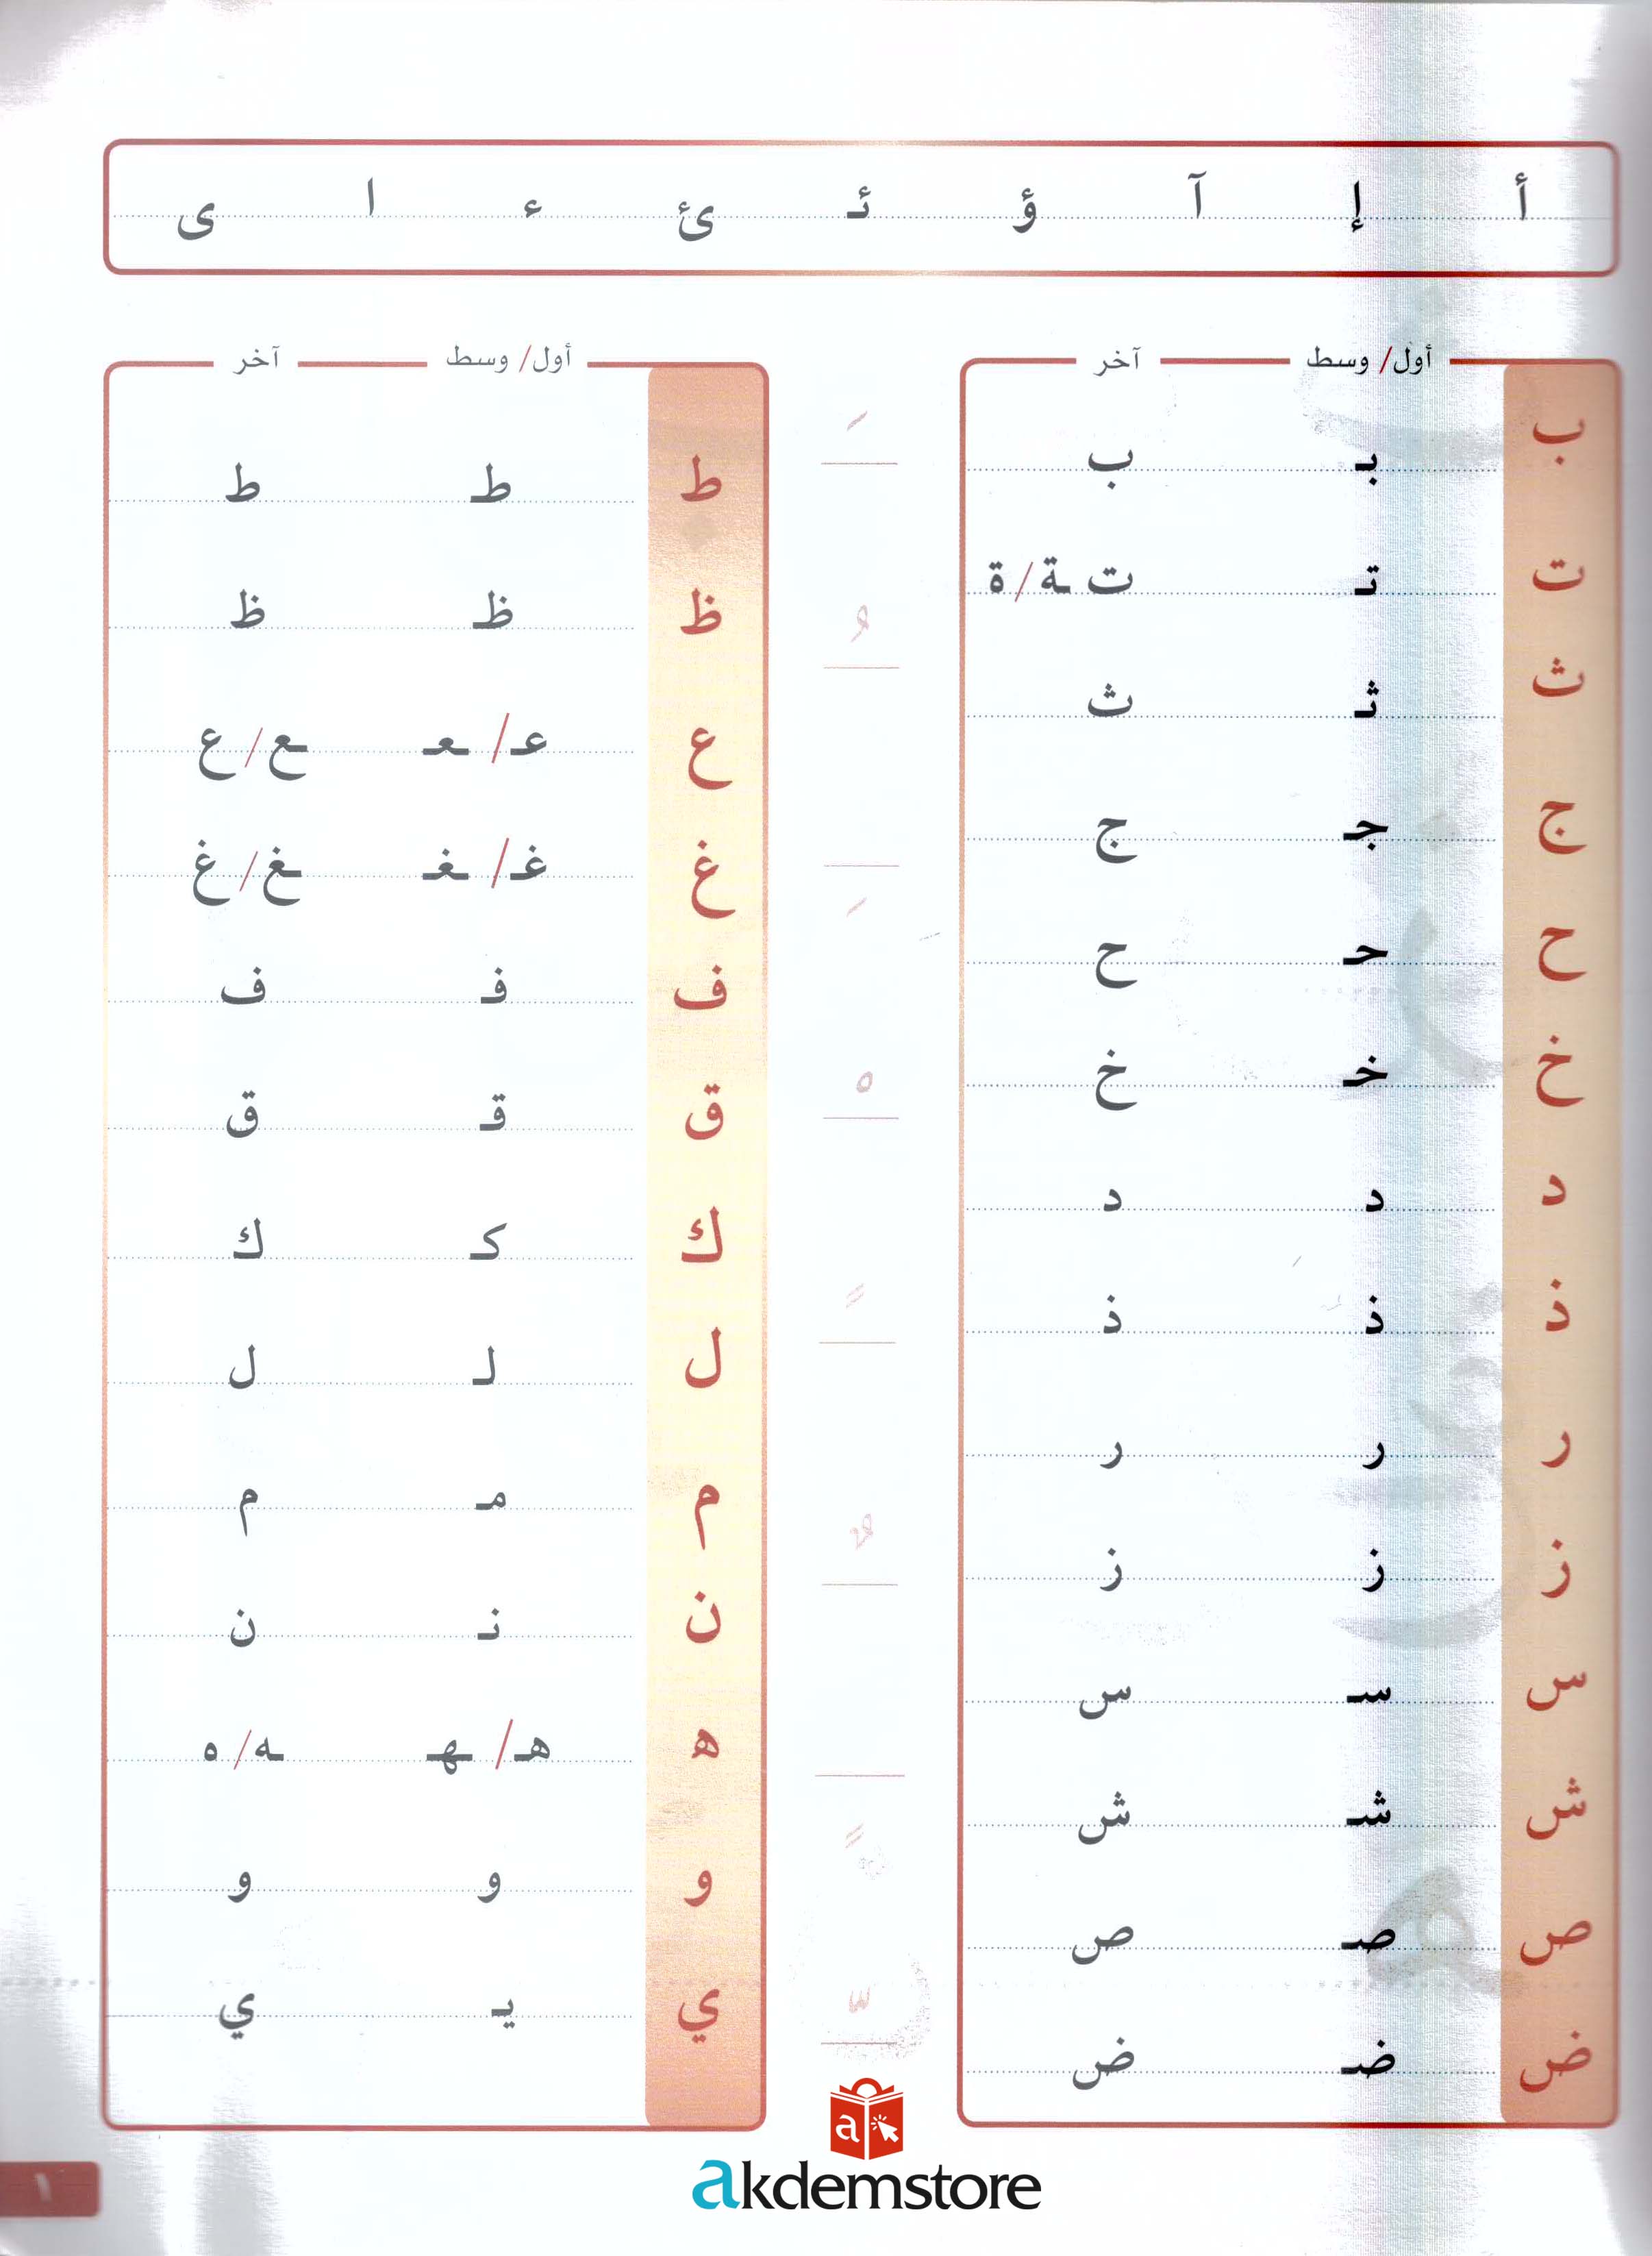 أ إ آ ؤ ئـ ئ ء ا ى
أول/ وسط آخر
ب بـ ب
ت تـ ت ـة/ة
ث ثـ ث
ج جـ ج
ح حـ ح
خ خـ خ
د د د
ذ ذ ذ
ر ر ر
ز ز ز
س سـ س
ش شـ ش
ص صـ ص
ض ضـ ض
َ
ُ
ِ
ْ
ً
ٌ
ٍ
ّ
أول/ وسط آخر
ط طـ ط
ظ ظـ ظ
ع عـ/ ـعـ ـع/ع
غ غـ/ ـغـ ـغ/غ
ف فـ ف
ق قـ ق
ك كـ ك
ل لـ ل
م مـ م
ن نـ ن
ه هـ/ ـهـ ـه/ه
و و و
ي يـ ي
a
akdemstore
١